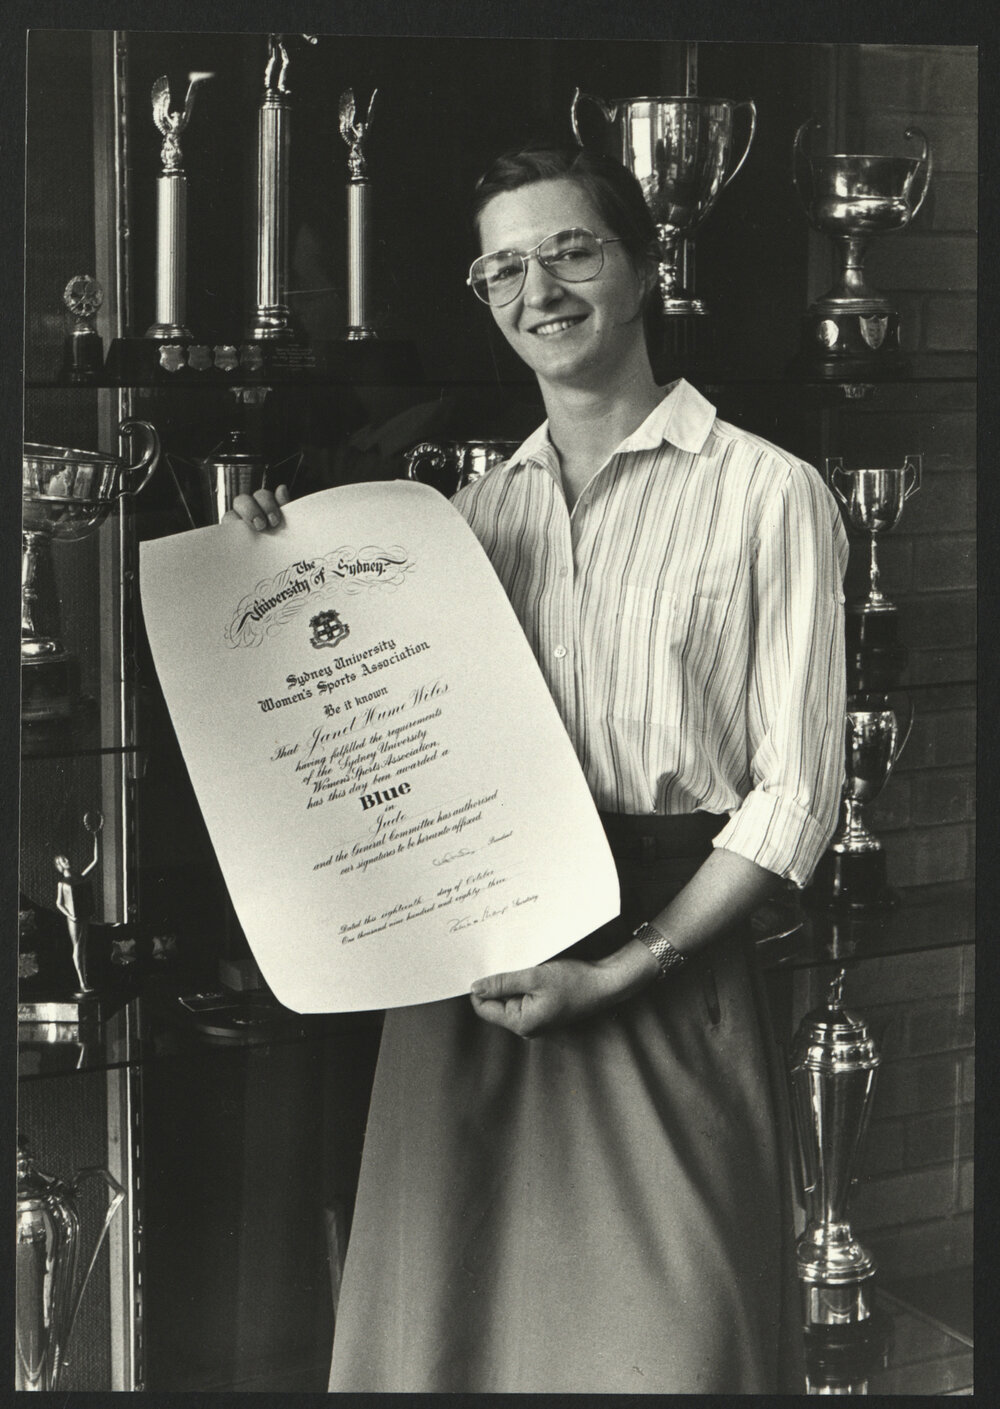 The
University of Sydney
Sydney University
Women's Sports Association
Be it known
That Janet Hume Wiles
having fulfilled the requirements
of the Sydney University
Women's Sports Association
has this day been awarded a
Blue
in
Judo
and the General Committee has authorised
our signatures to be hereunto affixed
President
Dated this eighteenth day of October
One thousand nine hundred and eighty-three
Secretary